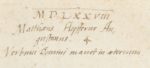 M D LXXVIII
Mathias
Augustanus
Verbum Domini manet in aeternum